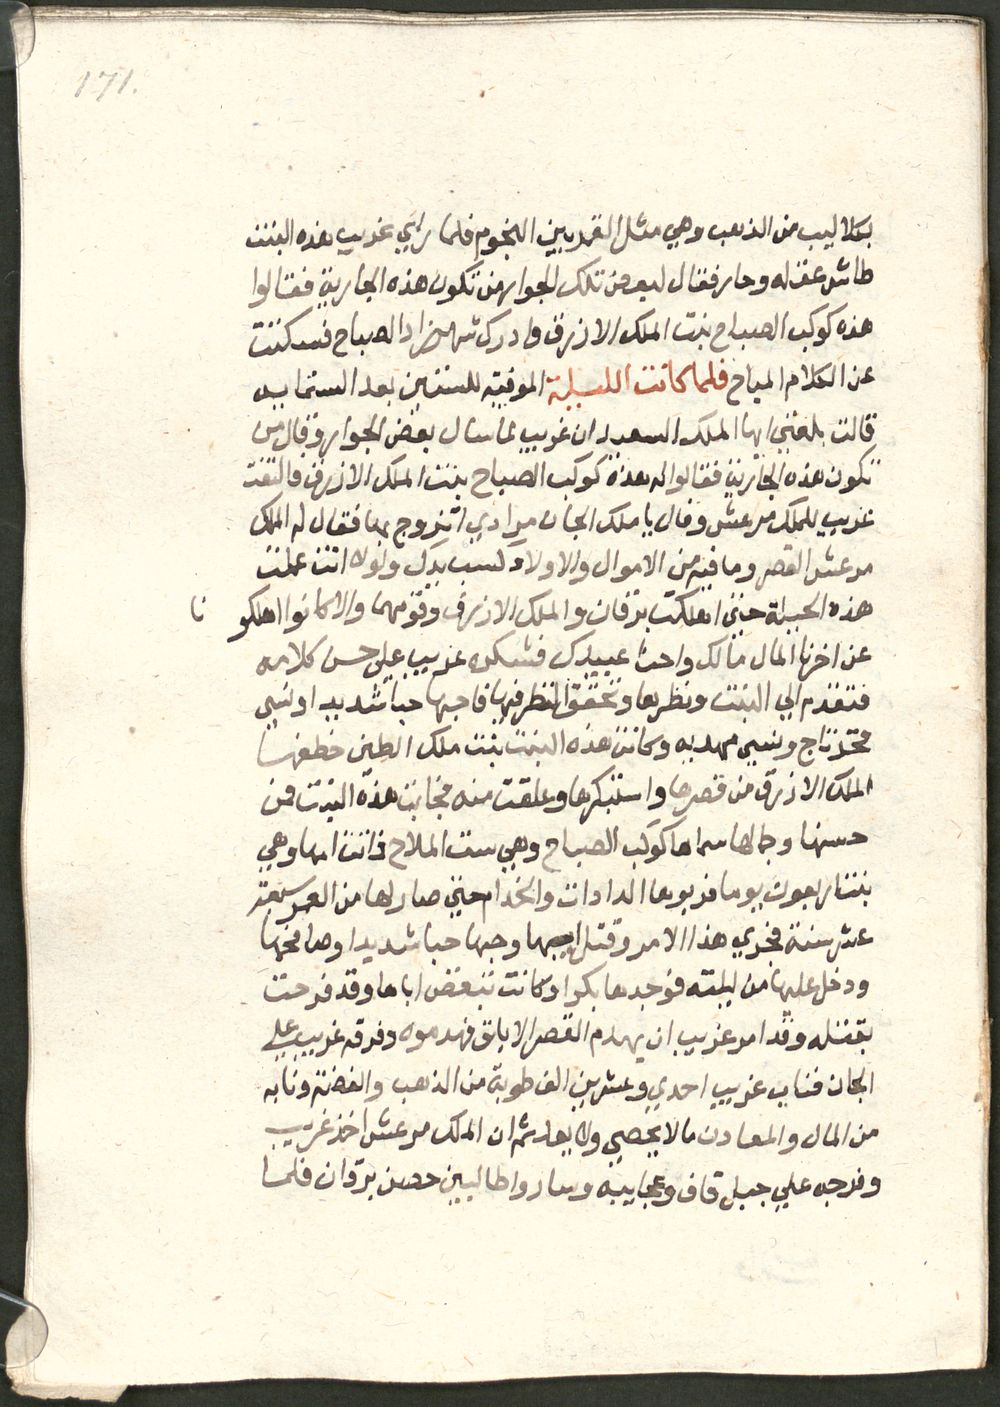 171.
بكلاليب من الذهب وهي مثل القمر بين النجوم فلما راي غريب هذه البنت
طاش عقله وحار فقال لبعض تلك الجوار من تكون هذه الجارية فقالوا
هذه كوكب الصباح بنت الملك الازرق وادرك شهرزاد الصباح فسكتت
عن الكلام المباح فلما كانت الليلة الموفية للستين بعد الستماية
قالت بلغني ايها الملك السعيد ان غريب لما سال بعض الجوار وقال من
تكون هذه الجارية فقالوا له هذه كوكب الصباح بنت الملك الازرق فالتفت
غريب للملك مرعش وقال يا ملك الجان مرادي اتزوج بها فقال له الملك
مرعش القصر وما فيه من الاموال والاولاد كسب يدك ولولا انت عملت
هذه الحيلة حتي اهلكت برقان والملك الازرق وقومهما والا كانوا اهلكونا
عن اخرنا المال مالك واحنا عبيدك فشكره غريب علي حسن كلامه
فتقدم الي البنت ونظرها وتحقق النظر فيها فاحبها حبا شديد اونسي
فخر تاج ونسي مهديه وكانت هذه البنت بنت ملك الصين خطفها
الملك الازرق من قصرها واستبكرها وعلقت منه فجابت هذه البنت فمن
حسنها وجمالها سماها كوكب الصباح وهي ست الملاح فماتت امها وهي
بنت اربعون يوما فربوها الدادات والخدام حتي صار لها من العمر سبعة
عشر سنة فجري هذا الامر وقتل ابيها وحبها حبا شديدا وصافحها
ودخل عليها من ليلته فوجدها بكرا وكانت تبغض اباها وقد فرحت
بقتله وقد امر غريب ان يهدم القصر الابلق فهدموه وفرقه غريب علي
الجان فناب غريب احدي وعشرين الف طوبة من الذهب والفضة ونابه
من المال والمعادن ما لا يحصي ولا يعد ثم ان الملك مرعش اخذ غريب
وفرجه علي جبل قاف وعجايبه وساروا طالبين حصن برقان فلما